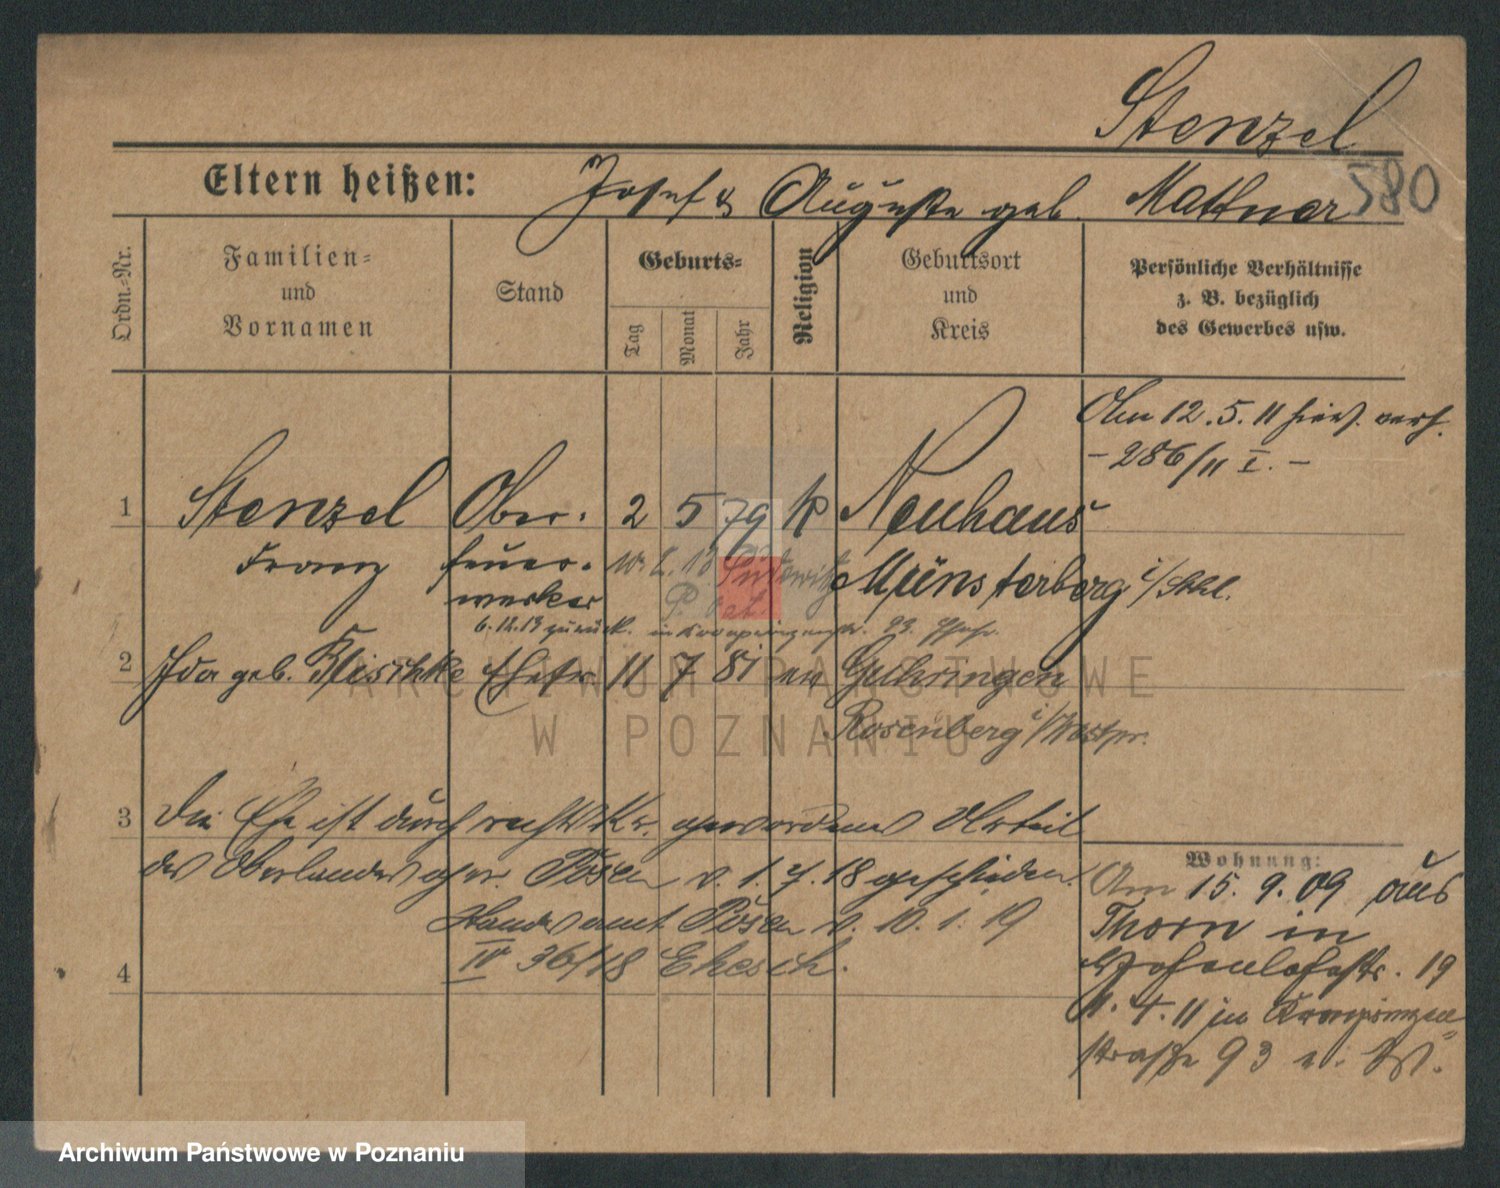 Stenzel
580
Eltern heißen: Josef & Auguste geb. Mattner
Ordn.-Nr.
Familien-
und
Vornamen
Stand
Geburts-
Tag
Monat
Jahr
Religion
Geburtsort
und
Kreis
Persönliche Verhältnisse
z. B. bezüglich
des Gewerbes usw.
Am 12.5.11 hies. verh.
- 286/11 I. -
1 Stenzel Ober- 2 5 79 k Neuhaus
Franz feuer- Münsterberg i/Schl.
werker
6.12.13 zurück. in Kronprinzenstr. 93
2 Ida geb. Klischke Ehefr. 11 7 81 ev Guhringen
Rosenberg i/Westpr.
3 Die Ehe ist durch rechtskr. gewordenes Urteil
des Oberlandesger. Posen v. 1.7.18 geschieden.
Standesamt Posen v. 10.1.19
IV 36/18 Ehesch.
4
Wohnung:
Am 15.9.09 aus
Thorn in
Hohenlohestr. 19
11.4.11 in Kronprinzen-
straße 93
ARCHIWUM PAŃSTWOWE
W POZNANIU
Archiwum Państwowe w Poznaniu